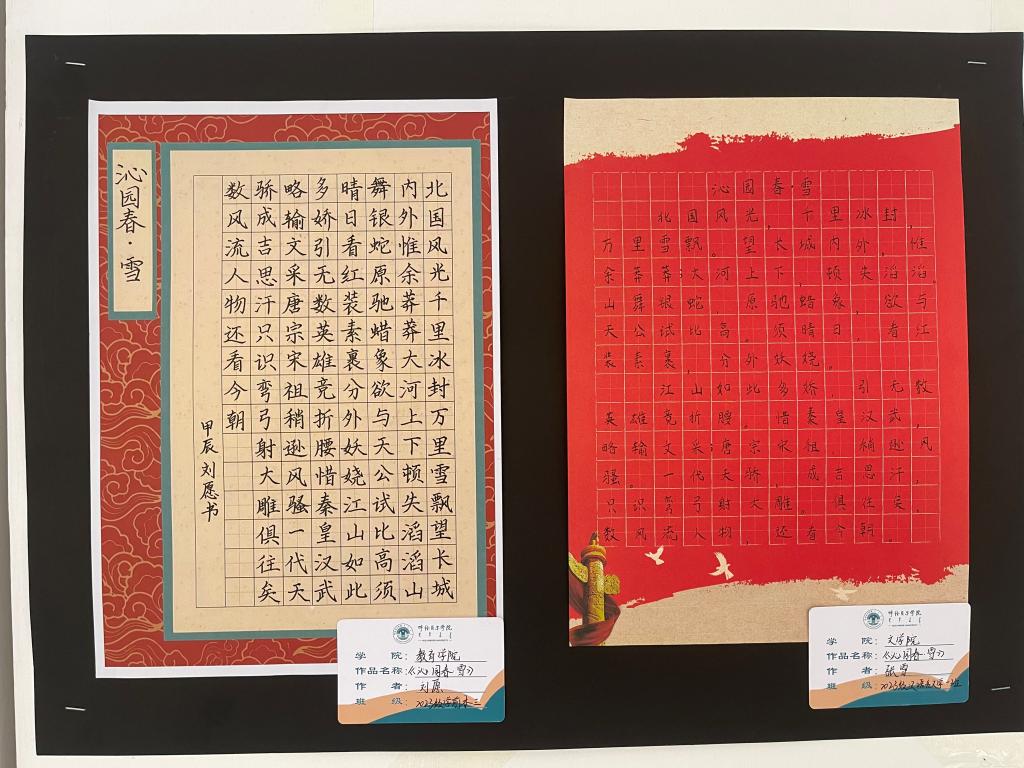 沁园春·雪
北国风光千里冰封万里雪飘望长城
内外惟余莽莽大河上下顿失滔滔山
舞银蛇原驰蜡象欲与天公试比高须
晴日看红装素裹分外妖娆江山如此
多娇引无数英雄竞折腰惜秦皇汉武
略输文采唐宗宋祖稍逊风骚一代天
骄成吉思汗只识弯弓射大雕俱往矣
数风流人物还看今朝
甲辰刘愿书
呼伦贝尔学院
学院：教育学院
作品名称：《沁园春·雪》
作者：刘愿
班级：2023级学前本三
沁园春·雪
北国风光，千里冰封，
万里雪飘。望长城内外，惟
余莽莽；大河上下，顿失滔滔。
山舞银蛇，原驰蜡象，欲与
天公试比高。须晴日，看红
装素裹，分外妖娆。
江山如此多娇，引无数
英雄竞折腰。惜秦皇汉武，
略输文采；唐宗宋祖，稍逊风
骚。一代天骄，成吉思汗，
只识弯弓射大雕。俱往矣，
数风流人物，还看今朝。
呼伦贝尔学院
学院：文学院
作品名称：《沁园春·雪》
作者：张雪
班级：2023级汉语言文学一班